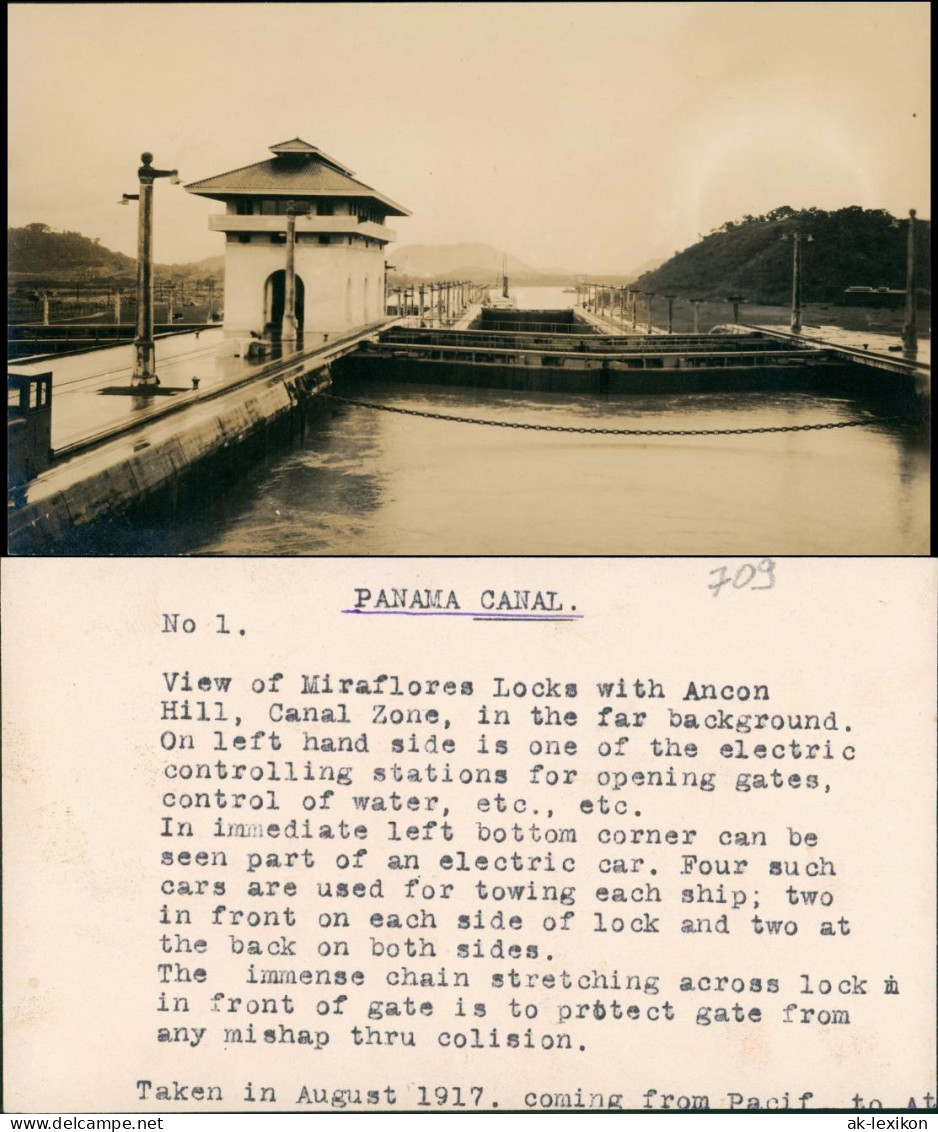 709
PANAMA CANAL.
No 1.
View of Miraflores Locks with Ancon
Hill, Canal Zone, in the far background.
On left hand side is one of the electric
controlling stations for opening gates,
control of water, etc., etc.
In immediate left bottom corner can be
seen part of an electric car. Four such
cars are used for towing each ship; two
in front on each side of lock and two at
the back on both sides.
The immense chain stretching across lock in
in front of gate is to protect gate from
any mishap thru colision.
Taken in August 1917. coming from Pacif to At
www.delcampe.net
ak-lexikon